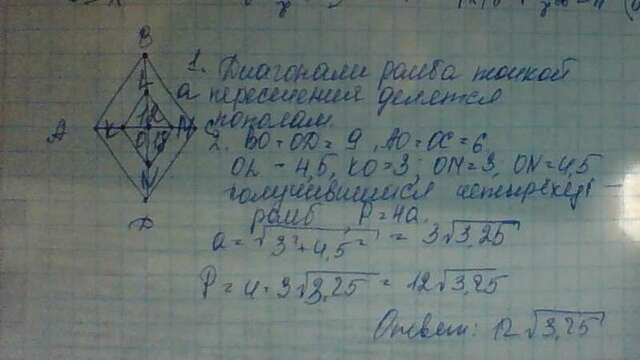 B
L
a
A
K
12
M
C
O
18
N
D
1. Диагонали ромба точкой
пересечения делятся
пополам.
2. BO=OD=9, AO=OC=6.
OL=4,5, KO=3; OM=3, ON=4,5
получившийся четырёхуг -
ромб P=4a.
a=√3²+4,5² = 3√3,25
P=4·3√3,25 = 12√3,25
Ответ: 12√3,25